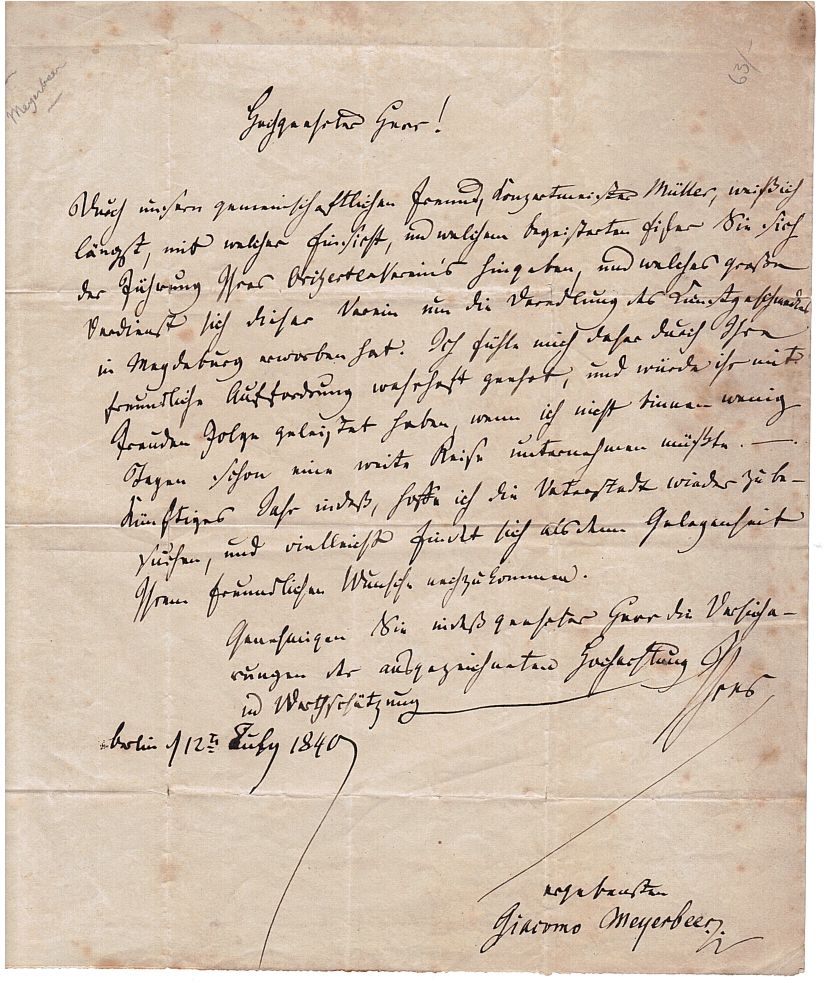 Meyerbeer
63/-
Hochgeehrter Herr!
Durch unsern gemeinschaftlichen Freund, Konzertmeister Müller, weiß ich
längst, mit welcher Einsicht, und welchem begeisterten Eifer Sie sich
der Führung Ihres hingeben, und welches große
Verdienst sich dieser Verein um die Veredlung des Kunstgeschmackes
in Magdeburg erworben hat. Ich fühle mich daher durch Ihre
freundliche Aufforderung wahrhaft geehrt, und würde ihr mit
Freuden Folge geleistet haben, wenn ich nicht binnen wenig
Tagen schon eine weite Reise unternehmen müßte. —
Künftiges Jahr indeß, hoffe ich die Vaterstadt wieder zu be-
suchen, und vielleicht findet sich alsdann Gelegenheit
Ihrem freundlichen Wunsche nachzukommen.
Genehmigen Sie indeß geehrter Herr die Versiche-
rungen der ausgezeichneten Hochachtung
und Werthschätzung Ihres
Berlin d 12t July 1840
ergebensten
Giacomo Meyerbeer